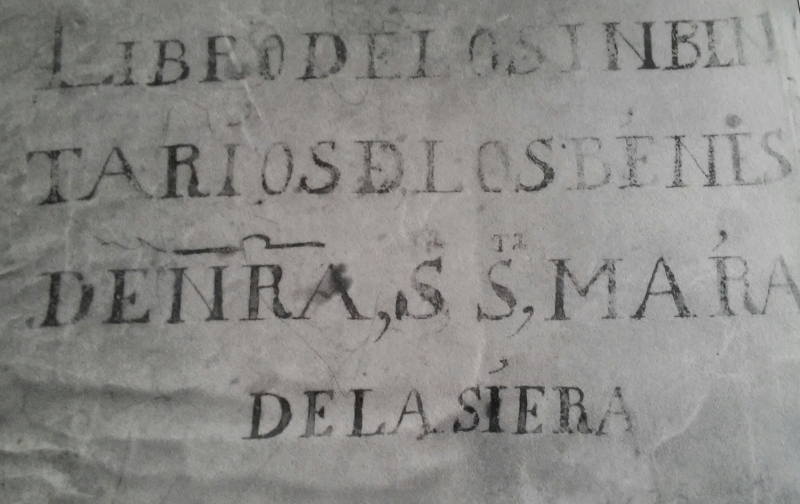 LIBRO DE LOS INBEN
TARIOS D LOS BENES
DE NRA, Sª Sᵀᴬ, MARA
DE LA SIERA